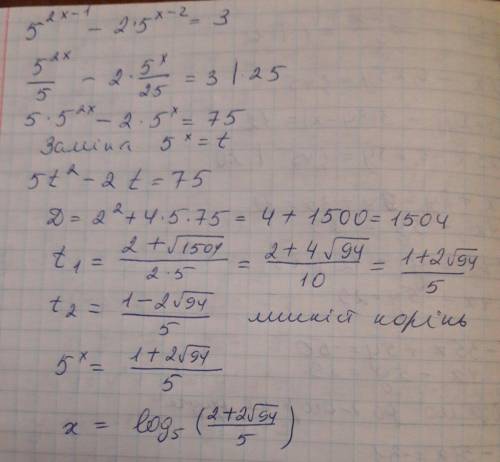 5^{2x-1} - 2·5^{x-2} = 3
\frac{5^{2x}}{5} - 2·\frac{5^x}{25} = 3 |·25
5·5^{2x} - 2·5^x = 75
Заміна 5^x = t
5t^2 - 2t = 75
D = 2^2 + 4·5·75 = 4 + 1500 = 1504
t_1 = \frac{2+\sqrt{1504}}{2·5} = \frac{2+4\sqrt{94}}{10} = \frac{1+2\sqrt{94}}{5}
t_2 = \frac{1-2\sqrt{94}}{5} корінь
5^x = \frac{1+2\sqrt{94}}{5}
x = log_5 (\frac{2+2\sqrt{94}}{5})